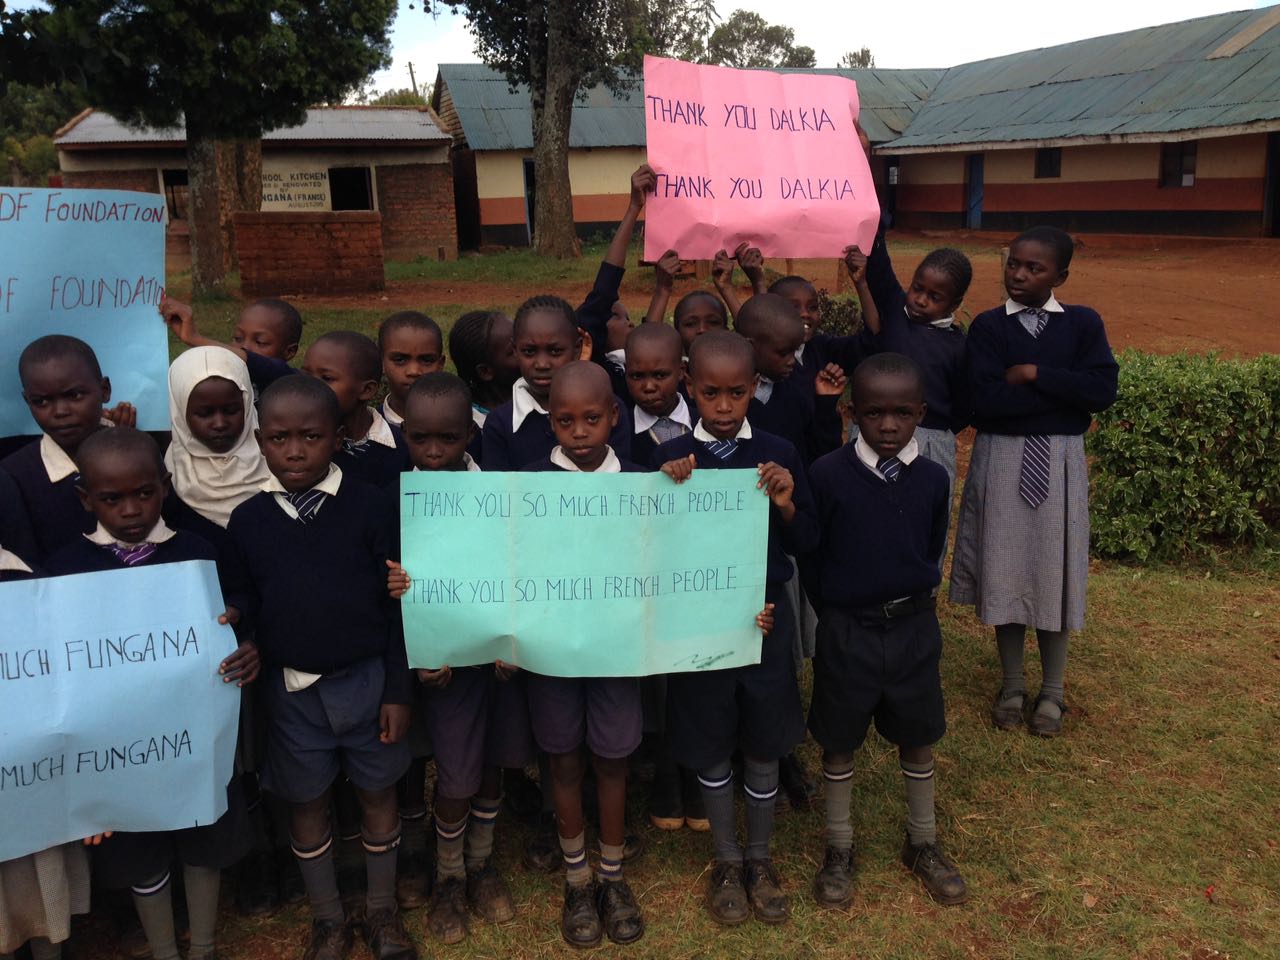 THANK YOU DALKIA
THANK YOU DALKIA
DF FOUNDATION
DF FOUNDATION
HOOL KITCHEN
& RENOVATED
BY
NGANA (FRANCE)
THANK YOU SO MUCH FRENCH PEOPLE
THANK YOU SO MUCH FRENCH PEOPLE
MUCH FUNGANA
MUCH FUNGANA